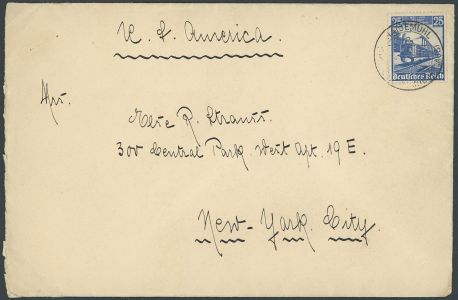 U. S. America.
25 25
Deutsches Reich
Mrs.
R. Strauss.
300 Central Park West Apt. 19 E.
New-York City.